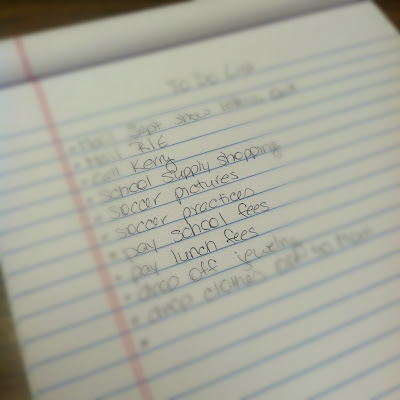 To Do List
• Mail Sept
• Mail
• Call Kerry
• School Supply shopping
• soccer pictures
• soccer practices
• pay school fees
• pay lunch fees
• drop off jewelry
• drop clothes
•